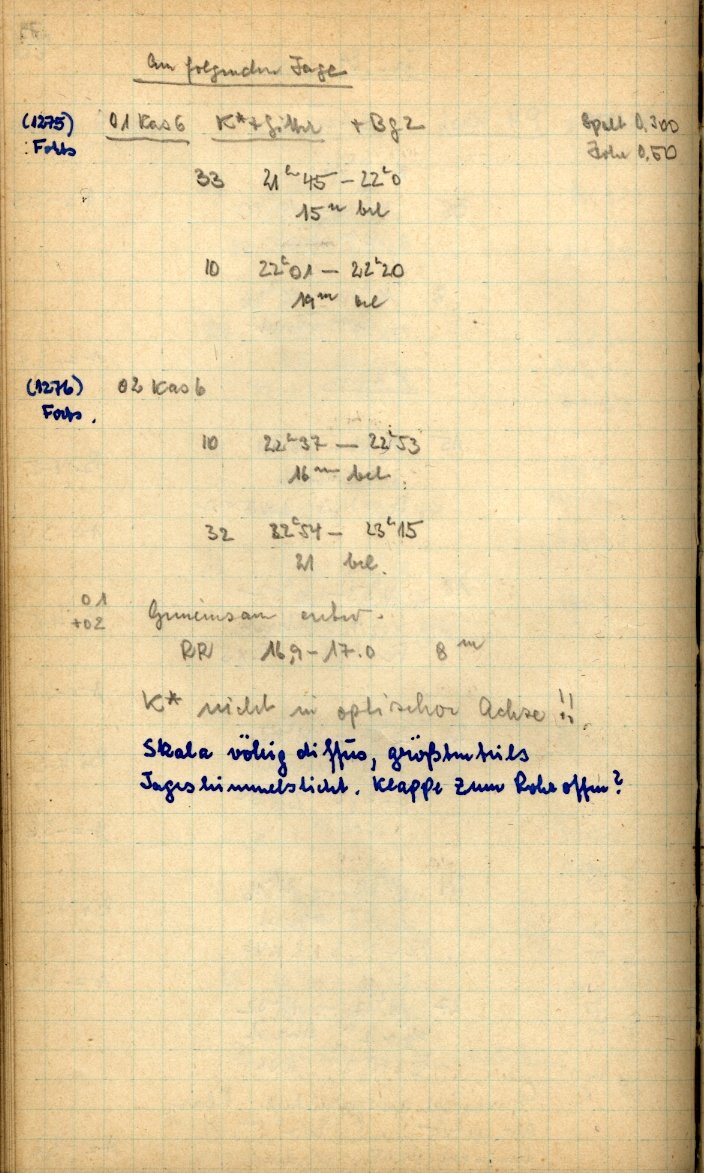 Am folgenden Tage
(1275) 01 Kas 6 K*+Gitter + Bg 2 Spalt 0,300
Forts Höhe 0,50
33 21h45 – 22h0
15m bel
10 22h01 – 22h20
19m bel
(1276) 02 Kas 6
Forts.
10 22h37 – 22h53
16m bel.
32 22h54 – 23h15
21 bel.
01
+02 Gemeinsam entw.
RR 16,9–17.0 8m
K* nicht in optischer Achse!!
Skala völlig diffus, größtenteils
Tageshimmelslicht. Klappe zum Rohr offen?